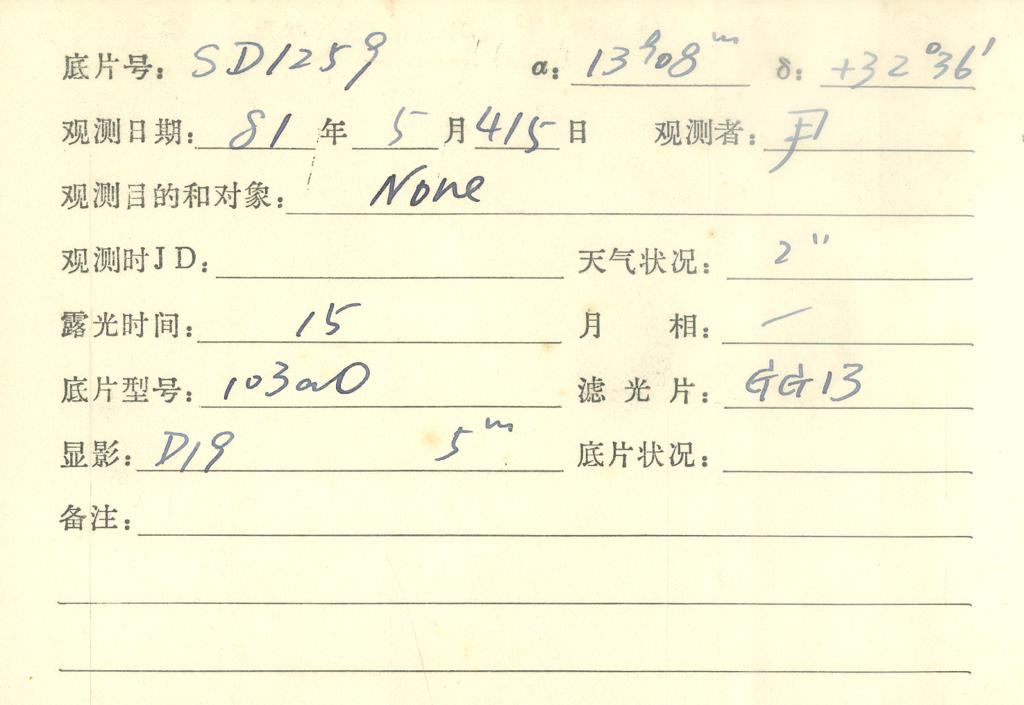 底片号: SD1259 α: 13ʰ08ᵐ δ: +32°36′
观测日期: 81 年 5 月 4/5 日 观测者:
观测目的和对象: None
观测时JD: 天气状况: 2″
露光时间: 15 月 相: —
底片型号: 103aO 滤光片: GG13
显影: D19 5ᵐ 底片状况:
备注: